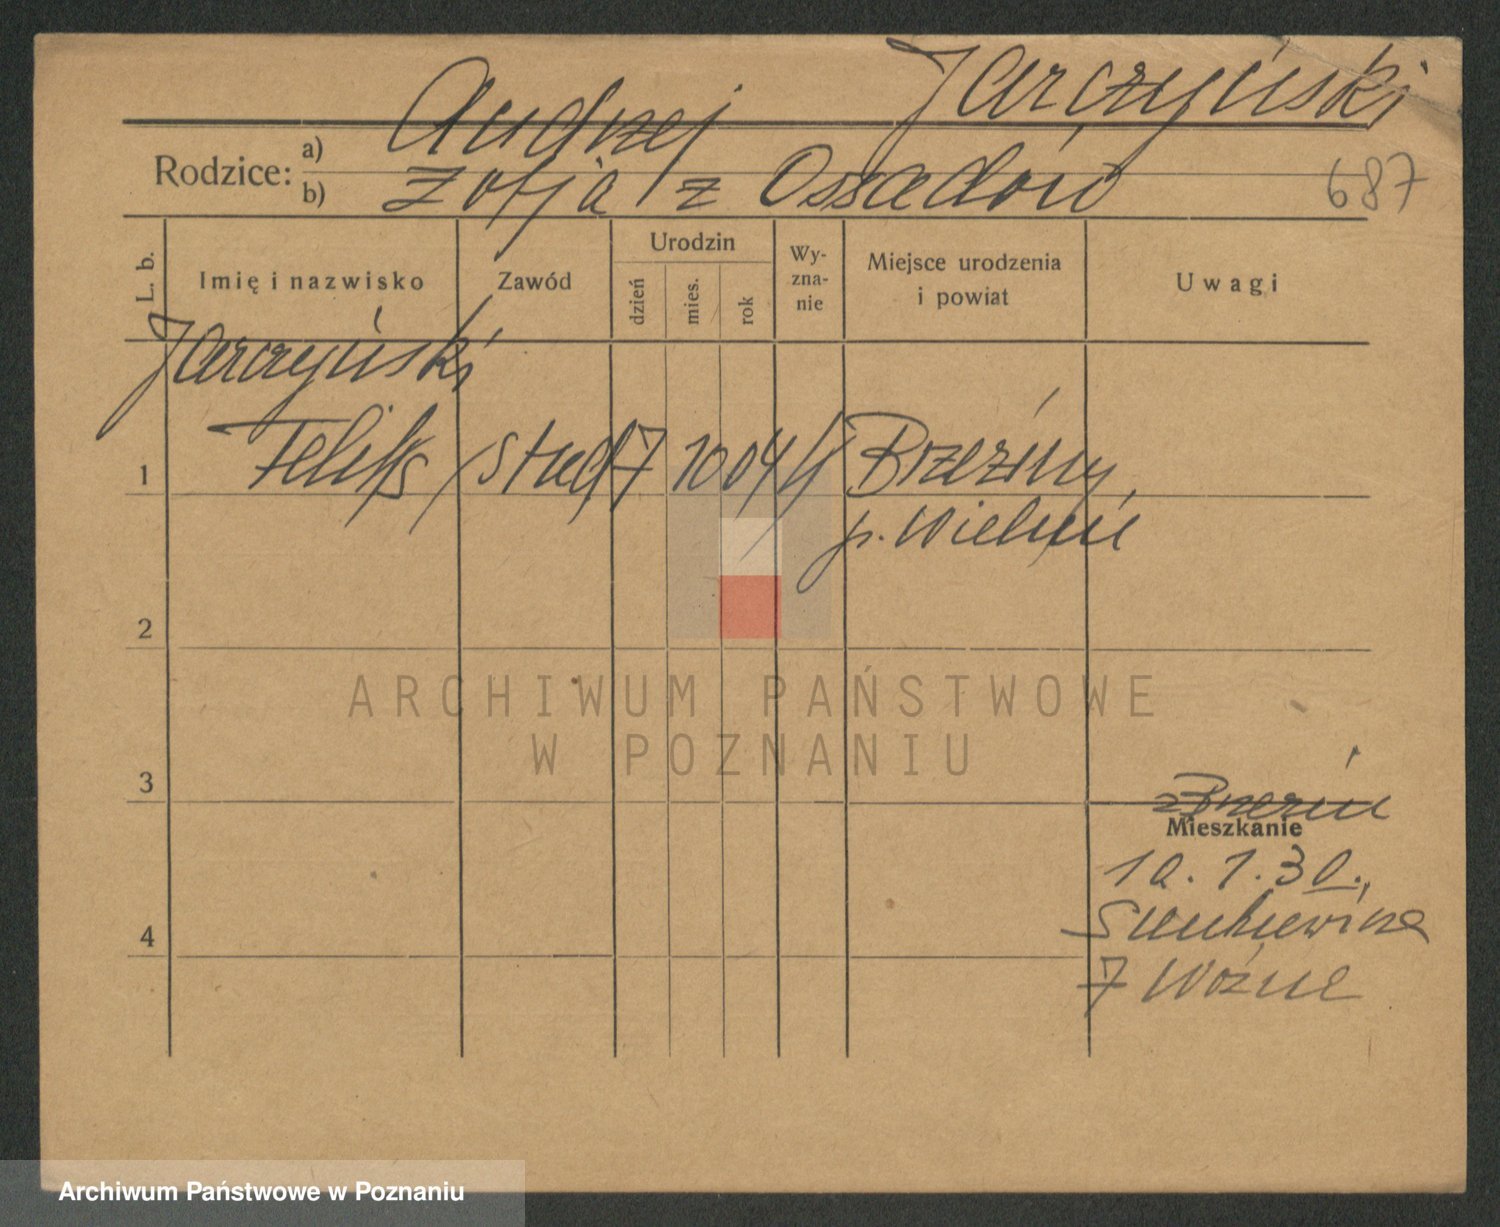 Jarczyński
Rodzice: a) Andrzej
b) Zofja z Ossedów
687
L. b.
Imię i nazwisko
Zawód
Urodzin
dzień
mies.
rok
Wy-
zna-
nie
Miejsce urodzenia
i powiat
Uwagi
Jarczyński
1 Feliks stud 7 10 04 Brzeziny
p. Wieluń
2
ARCHIWUM PAŃSTWOWE
W POZNANIU
3
Mieszkanie
10.1.30.,
Sienkiewicza
7 Woźne
4
Archiwum Państwowe w Poznaniu